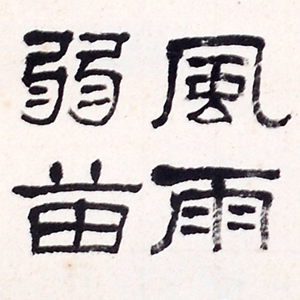 風雨
弱苗